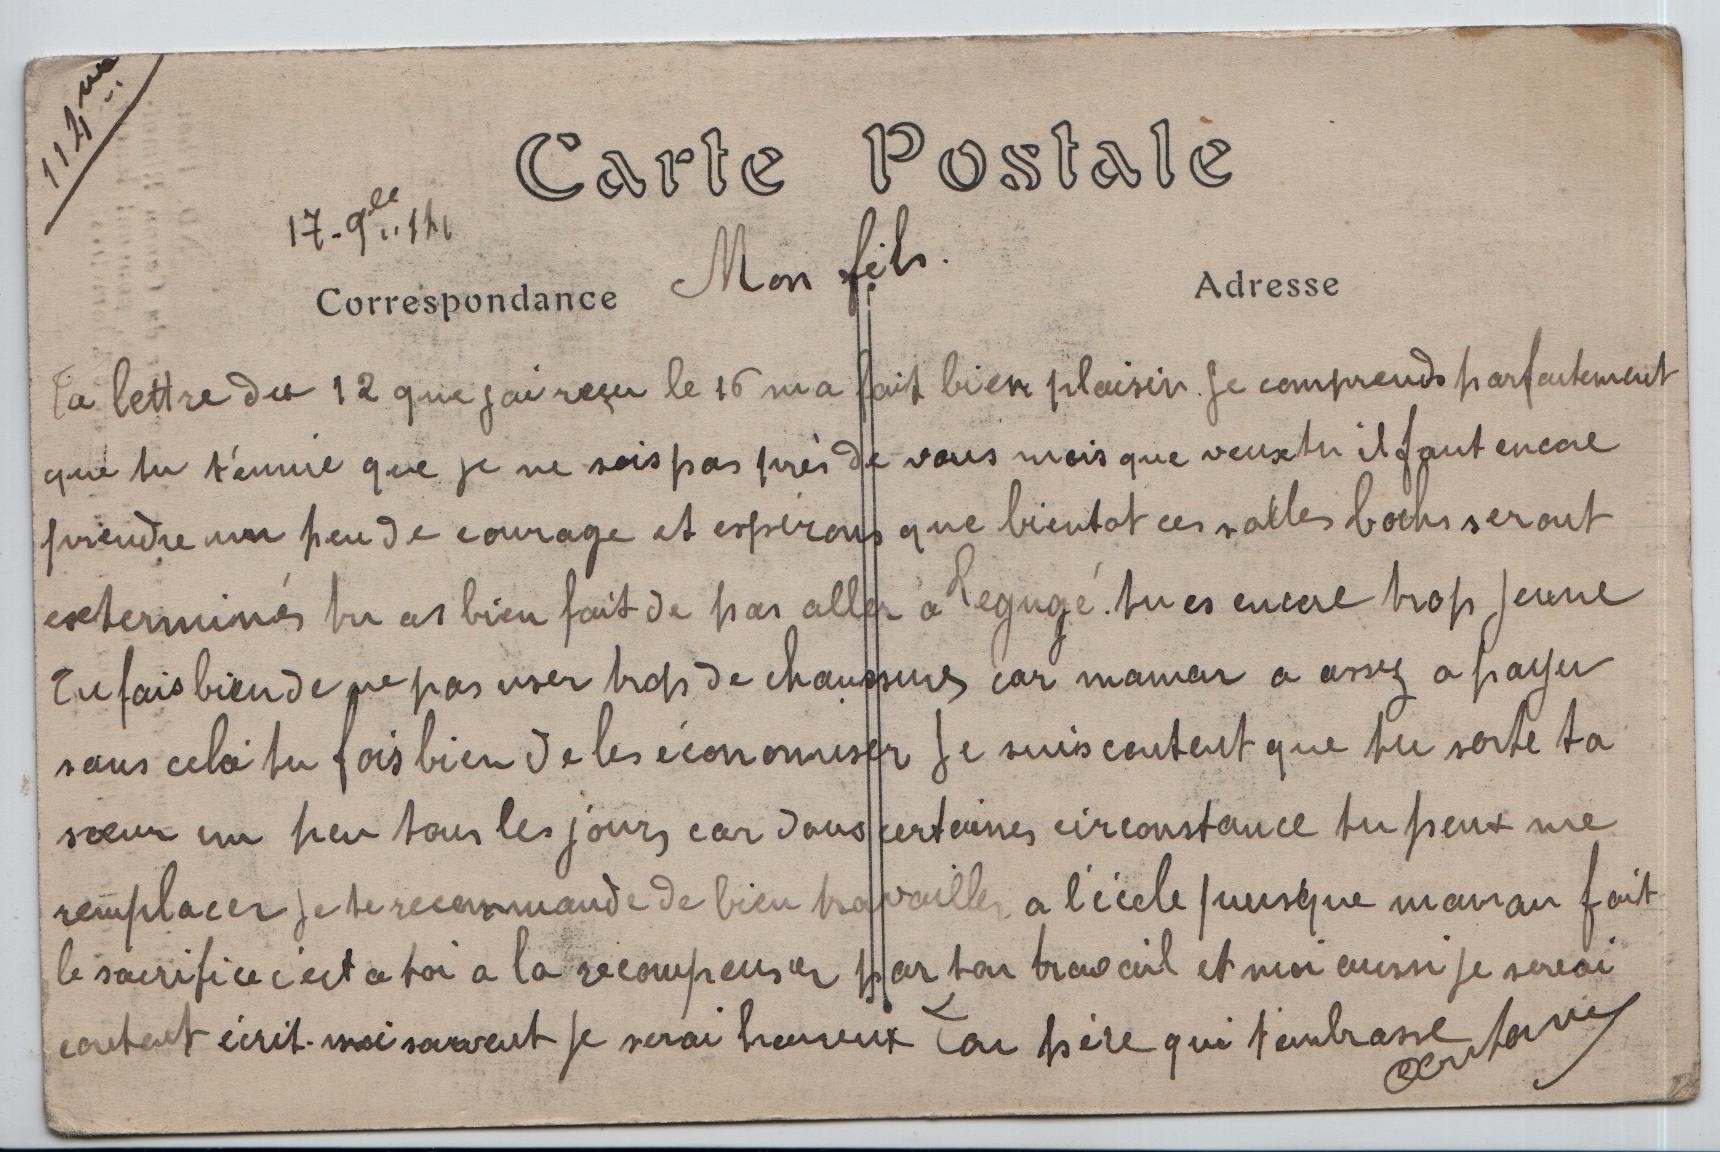 114
Carte Postale
17-9bre 14
Mon fils.
Correspondance
Adresse
Ta lettre du 12 que jai reçu le 16 m a fait bien plaisir. Je comprends parfaitement
que tu t'ennuie que je ne sois pas près de vous mais que veux tu il faut encore
prendre un peu de courage et espérons que bientot ces salles bochs seront
exterminés tu as bien fait de pas aller a Legugé. tu es encore trop jeune
Tu fais bien de ne pas user trop de chaussures car maman a assez a payer
sans celà tu fais bien de les économiser Je suis content que tu sorte ta
sœur un peu tous les jours car dans certaines circonstance tu peux me
remplacer je te recommande de bien travailler a l'école puisque maman fait
le sacrifice c'est a toi a la recompenser par ton travail et moi aussi je serai
content écrit-moi souvent je serai heureux Ton père qui t'embrasse